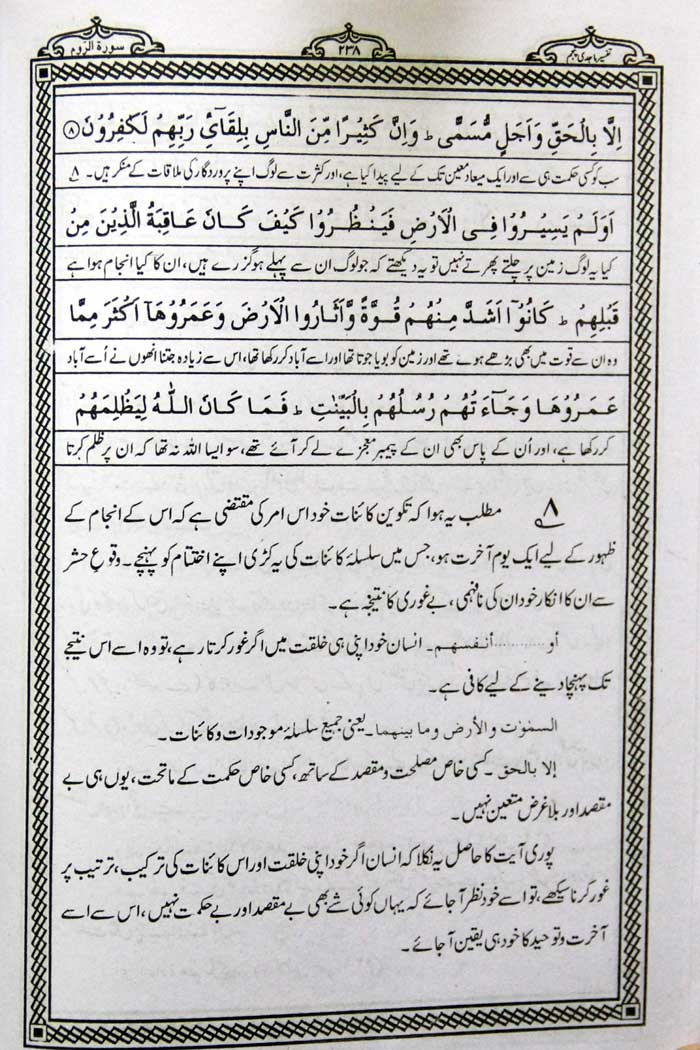 تفسیر ماجدی پنجم
۲۳۸
سورة الرّوم
اِلَّا بِالْحَقِّ وَاَجَلٍ مُّسَمًّى ؕ وَاِنَّ كَثِيْرًا مِّنَ النَّاسِ بِلِقَآئِ رَبِّهِمْ لَكٰفِرُوْنَ ۸
سب کو کسی حکمت ہی سے اور ایک میعاد معین تک کے لیے پیدا کیا ہے، اور کثرت سے لوگ اپنے پروردگار کی ملاقات کے منکر ہیں۔ ۸
اَوَلَمْ يَسِيْرُوْا فِى الْاَرْضِ فَيَنْظُرُوْا كَيْفَ كَانَ عَاقِبَةُ الَّذِيْنَ مِنْ
کیا یہ لوگ زمین پر چلتے پھرتے نہیں تو یہ دیکھتے کہ جو لوگ ان سے پہلے ہو گزرے ہیں، ان کا کیا انجام ہوا ہے
قَبْلِهِمْ ؕ كَانُوْٓا اَشَدَّ مِنْهُمْ قُوَّةً وَّاَثَارُوا الْاَرْضَ وَعَمَرُوْهَآ اَكْثَرَ مِمَّا
وہ ان سے قوت میں بھی بڑھے ہوے تھے اور زمین کو بویا جوتا تھا اور اسے آباد کر رکھا تھا، اس سے زیادہ جتنا انھوں نے اُسے آباد
عَمَرُوْهَا وَجَآءَتْهُمْ رُسُلُهُمْ بِالْبَيِّنٰتِ ؕ فَمَا كَانَ اللّٰهُ لِيَظْلِمَهُمْ
کر رکھا ہے، اور اُن کے پاس بھی ان کے پیمبر معجزے لے کر آئے تھے، سو ایسا اللہ نہ تھا کہ ان پر ظلم کرتا
۸ مطلب یہ ہوا کہ تکوین کائنات خود اس امر کی مقتضی ہے کہ اس کے انجام کے
ظہور کے لیے ایک یوم آخرت ہو، جس میں سلسلۂ کائنات کی یہ کڑی اپنے اختتام کو پہنچے۔ وقوعِ حشر
سے ان کا انکار خود ان کی نافہمی، بے غوری کا نتیجہ ہے۔
أو............أنفسهم۔ انسان خود اپنی ہی خلقت میں اگر غور کرتا رہے، تو وہ اسے اس نتیجے
تک پہنچا دینے کے لیے کافی ہے۔
السمٰوٰت والأرض وما بينهما۔ یعنی جمیع سلسلۂ موجودات و کائنات۔
إلا بالحق۔ کسی خاص مصلحت و مقصد کے ساتھ، کسی خاص حکمت کے ماتحت، یوں ہی بے
مقصد اور بلا غرض متعین نہیں۔
پوری آیت کا حاصل یہ نکلا کہ انسان اگر خود اپنی خلقت اور اس کائنات کی ترکیب، ترتیب پر
غور کرنا سیکھے، تو اسے خود نظر آ جائے کہ یہاں کوئی شے بھی بے مقصد اور بے حکمت نہیں، اس سے اسے
آخرت و توحید کا خود ہی یقین آ جائے۔